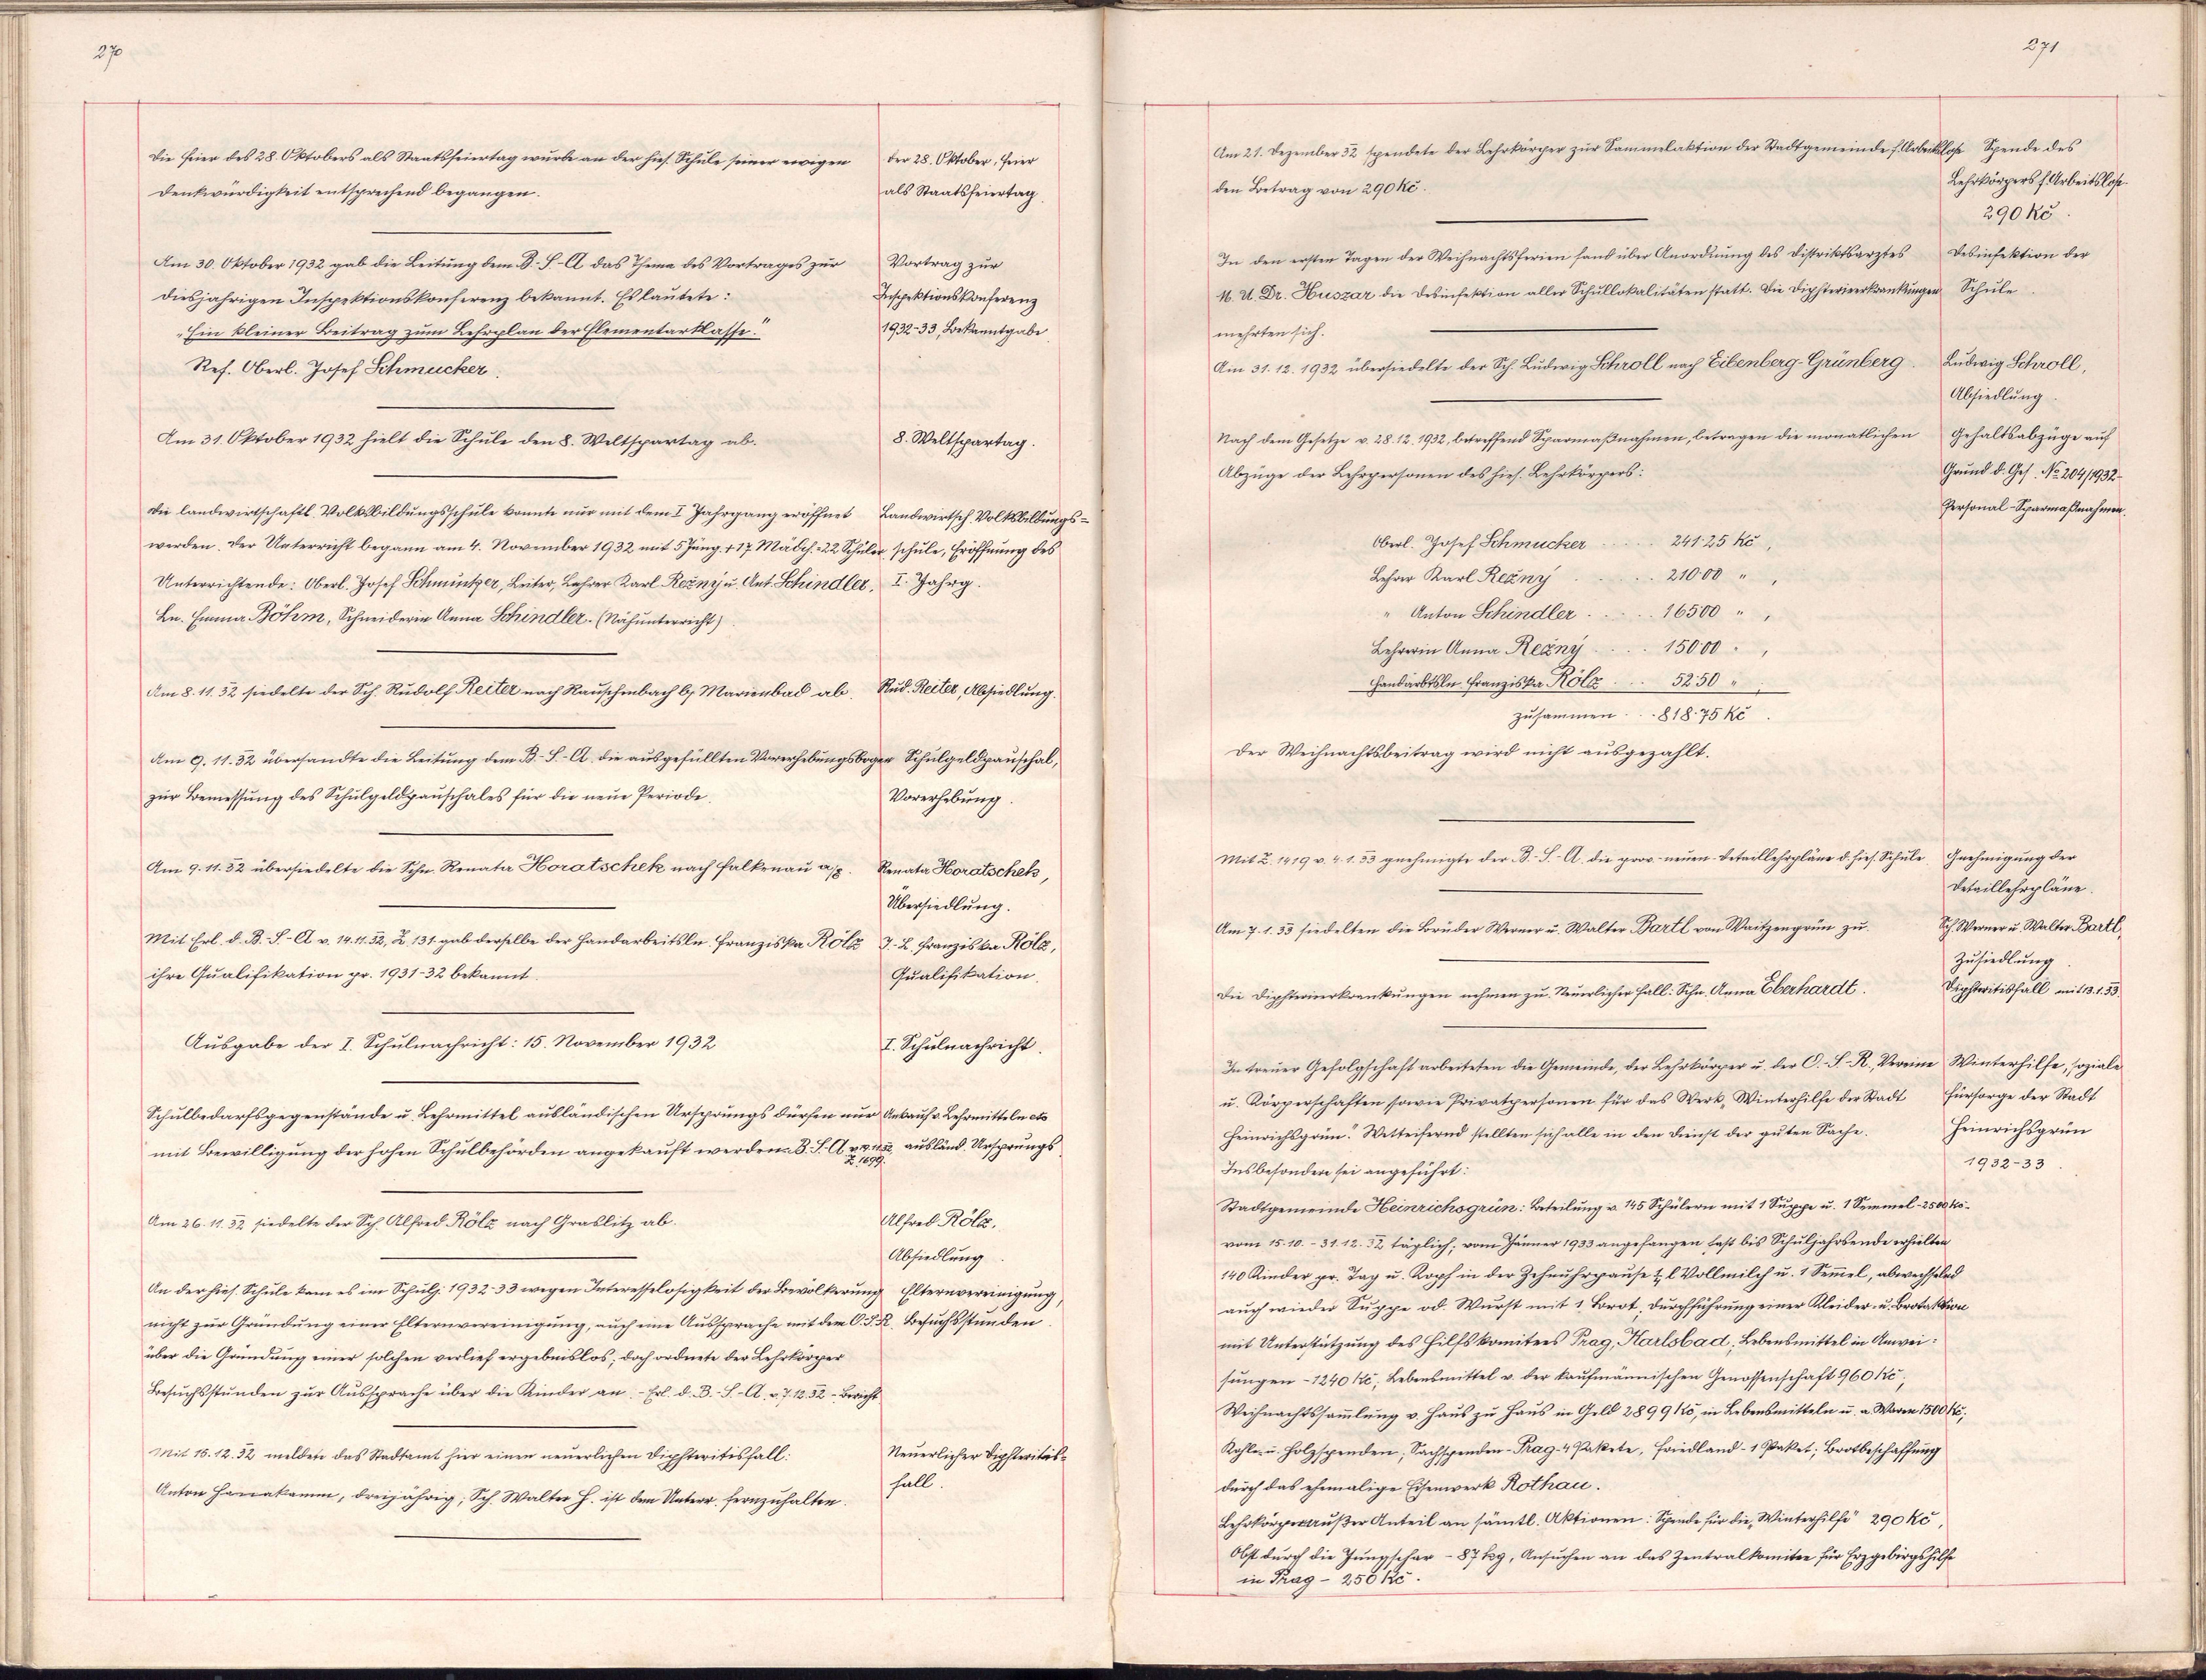 270
Die Feier des 28. Oktobers als Staatsfeiertag wurde an der hies. Schule seiner ewigen
Denkwürdigkeit entsprechend begangen.
Der 28. Oktober, Feier
als Staatsfeiertag.
Am 30. Oktober 1932 gab die Leitung dem B.-S.-A das Thema des Vortrages zur
diesjährigen Inspektionskonferenz bekannt. Es lautete:
„Ein kleiner Beitrag zum Lehrplan der Elementarklasse."
Ref. Oberl. Josef Schmucker.
Vortrag zur
Inspektionskonferenz
1932-33, Bekanntgabe
Am 31. Oktober 1932 hielt die Schule den 8. Weltspartag ab.
8. Weltspartag.
Die landwirtschaftl. Volksbildungsschule konnte nur mit dem I Jahrgang eröffnet
werden. Der Unterricht begann am 4. November 1932 mit 5 Jüng. + 17 Mädch. = 22 Schüler
Unterrichtende: Oberl. Josef Schmucker, Leiter, Lehrer Karl Režný u. Ant. Schindler,
Ln. Emma Böhm, Schneiderin Anna Schindler. (Nähunterricht)
Landwirtsch Volksbildungs=
schule, Eröffnung des
I. Jahrg.
Am 8. 11. 32 siedelte der Sch. Rudolf Reiter nach Rauschenbach b/ Marienbad ab.
Rud. Reiter, Absiedlung.
Am 9. 11. 32 übersandte die Leitung dem B.-S.-A. die ausgefüllten Vorerhebungsbogen
zur Bemessung des Schulgeldpauschales für die neue Periode.
Schulgeldpauschal,
Vorerhebung.
Am 9. 11. 32 übersiedelte die Schn. Renata Horatschek nach Falkenau a/E.
Renata Horatschek,
Übersiedlung.
Mit Erl. d. B.-S.-A v. 14. 11. 32, Z. 131. gab derselbe der Handarbeitsln. Franziska Rölz
ihre Qualifikation pr. 1931-32 bekannt.
Franziska Rölz,
Qualifikation.
Ausgabe der I. Schulnachricht: 15. November 1932
I. Schulnachricht.
Schulbedarfsgegenstände u. Lehrmittel ausländischen Ursprungs dürfen nur
mit Bewilligung der hohen Schulbehörden angekauft werden. B. S. A
Z. 1699.
Ankauf v. Lehrmitteln etc
ausländ. Ursprungs
Am 26. 11. 32 siedelte der Sch. Alfred Rölz nach Graslitz ab.
Alfred Rölz,
Absiedlung
An der hies. Schule kam es im Schulj. 1932-33 wegen Interesselosigkeit der Bevölkerung
nicht zur Gründung einer Elternvereinigung, auch eine Aussprache mit dem O. S. R.
über die Gründung einer solchen verlief ergebnislos; doch ordnete der Lehrkörper
Besuchsstunden zur Aussprache über die Kinder an. - Erl. d. B.-S.-A. v. 7. 12. 32 - Bericht
Elternvereinigung,
Besuchsstunden.
Mit 16. 12. 32 meldete das Stadtamt hier einen neuerlichen Diphteritisfall:
Anton Hanakamm, dreijährig; Sch. Walter H. ist dem Unterr. fernzuhalten.
Neuerlicher Diphteritis-
fall.
271
Am 21. Dezember 32 spendete der Lehrkörper zur Sammelaktion der Stadtgemeinde f. Arbeitslose
den Betrag von 290 Kč.
Spende des
Lehrkörpers f. Arbeitslose
290 Kč.
In den ersten Tagen der Weihnachtsferien fand über Anordnung des Distriktsarztes
M. U. Dr. Huszar die Desinfektion aller Schullokalitäten statt. Die Diphterieerkrankungen
mehrten sich.
Desinfektion der
Schule
Am 31. 12. 1932 übersiedelte der Sch. Ludwig Schroll nach Eibenberg-Grünberg.
Ludwig Schroll,
Absiedlung.
Nach dem Gesetze v. 28. 12. 1932, betreffend Sparmaßnahmen, betragen die monatlichen
Abzüge der Lehrpersonen des hies. Lehrkörpers:
Gehaltsabzüge auf
Grund d. Ges. No 204/1932-
Personal-Sparmaßnahmen.
Oberl. Josef Schmucker ..... 241·25 Kč,
Lehrer Karl Režný ..... 210·00 " ,
" Anton Schindler ..... 165·00 " ,
Lehrerin Anna Režný .... 150·00 " ,
Handarbtsln. Franziska Rölz ... 52·50 "
zusammen ... 818·75 Kč.
Der Weihnachtsbeitrag wird nicht ausgezahlt.
Mit Z. 1419 v. 4. 1. 33 gnehmigte der B.-S.-A. die prov. neuen Detaillehrpläne d. hies. Schule.
Gnehmigung der
Detaillehrpläne.
Am 7. 1. 33 siedelten die Brüder Werner u. Walter Bartl von Waitzengrün zu.
Sch. Werner u. Walter Bartl,
Zusiedlung.
Die Diphterieerkrankungen nehmen zu. Neuerlicher Fall: Schn. Anna Eberhardt.
Diphteritisfall mit 13. 1. 33.
In treuer Gefolgschaft arbeiteten die Gemeinde, der Lehrkörper u. der O.-S.-R., Vereine
u. Körperschaften sowie Privatpersonen für das Werk „Winterhilfe der Stadt
Heinrichsgrün." Wetteifernd stellten sich alle in den Dienst der guten Sache.
Insbesondere sei angeführt:
Winterhilfe, soziale
Fürsorge der Stadt
Heinrichsgrün
1932-33.
Stadtgemeinde Heinrichsgrün: Beteilung v. 145 Schülern mit 1 Suppe u. 1 Semmel - 2500 Kč -
vom 15. 10. - 31. 12. 32 täglich; vom Jänner 1933 angefangen fast bis Schuljahrsende erhielten
140 Kinder pr. Tag u. Kopf in der Zehnuhrpause ¼ l Vollmilch u. 1 Sem̄el, abwechselnd
auch wieder Suppe od. Wurst mit 1 Brot, Durchführung einer Kleider- u. Brotaktion
mit Unterstützung des Hilfskomitees Prag, Karlsbad; Lebensmittel in Anwei=
sungen - 1240 Kč; Lebensmittel v. der kaufmännischen Genossenschaft 960 Kč;
Weihnachtssam̄lung v. Haus zu Haus in Geld 2899 Kč, in Lebensmitteln u. a. Waren 1500 Kč;
Kohle- u. Holzspenden; Sachspenden - Prag - 4 Pakete, Friedland - 1 Paket; Brotbeschaffung
durch das ehemalige Eisenwerk Rothau.
Lehrkörper außer Anteil an sämtl. Aktionen: Spende für die „Winterhilfe" 290 Kč,
Obst durch die Jungschar - 87 kg, Ansuchen an das Zentralkomitee für Erzgebirgshilfe
in Prag - 250 Kč.